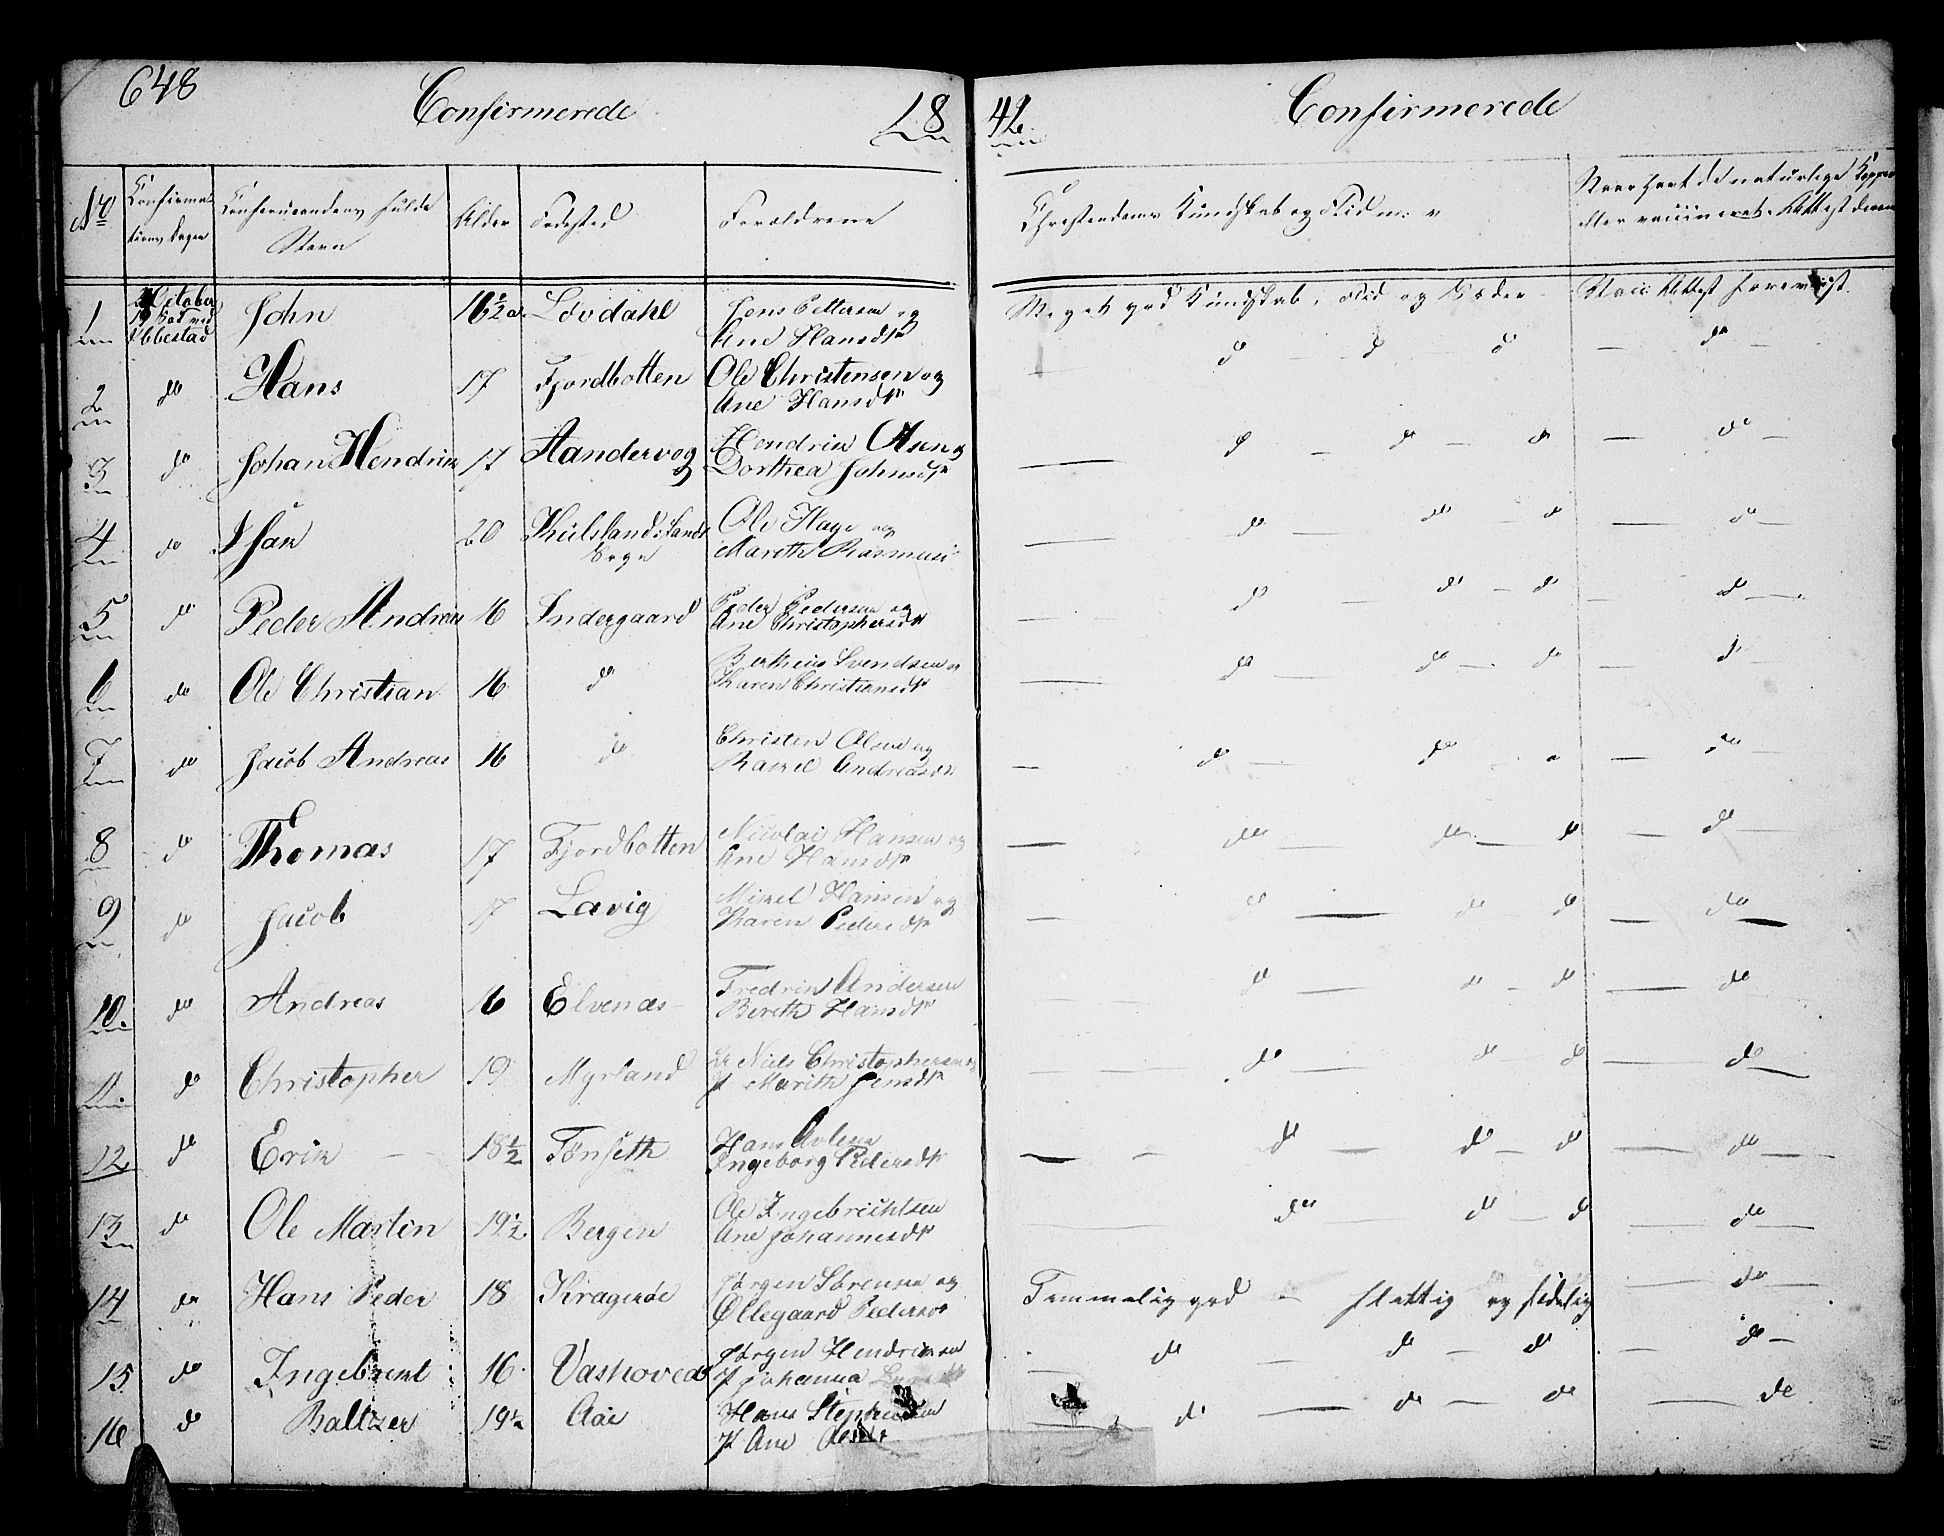 648
Confirmerede 18
42. Confirmerede
No Confirmationsdagen Confirmandens fulde Navn Alder Fødested Forældrene Christendoms Kundskab og Flid m: v Naar havt de naturlige Kopper eller vaccineret. Attest derom
1 October Ibbestad John 16½ Løvdahl Jens Pettersen og Ane Hansdtr Meget god Kundskab, Flid og Sæder Vacc: Attest foreviist.
2 do Hans 17 Fjordbotten Ole Christensen og Ane Hansdtr — do — do do — do
3 do Johan Hendrik 17 Aandervog Hendrik Olsen og Dorthea Johnsdtr — do — do — do — do —
4 do Isak 20 Ole Hage og Mareth Rasmusd — do — do — do — do —
5 do Peder Andreas 16 Indergaard Peder Pedersen og Ane Christophersdtr — do — do — do — do —
6 do Ole Christian 16 do Bertheus Svendsen og Karen Christiansdtr — do — do — do — do
7 do Jacob Andreas 16 do Christen Olsen og Rakel Andreasdtr — do — do — do — do —
8 do Thomas 17 Fjordbotten Nicolai Hansen og Ane Hansdtr — do — do — do — do —
9 do Jacob 17 Lavig Mikel Hansen og Karen Pedersdtr — do — do do — do —
10. do Andreas 16 Elvenæs Fredrik Andersen Bereth Hansdtr — do — do — do — do
11. do Christopher 19 Myrland Niels Christophersen og Marith Jensdtr — do — do — do — do —
12 do Erik — 18½ Tønseth Hans Ingeborg Pedersdtr — do — do — do — do —
13 do Ole Martin 19½ Bergen Ole Ingebrichtsen Ane Johannesdtr — do — do — do — do —
14 do Hans Peder 18 Kragerøe Jørgen Sørensen og Ollegaard Pedersd Temmelig god — flittig og sædelig — do —
15 do Ingebrekt 16 Vashoved Jørgen Hendriksen Johanna — do — do — do — do —
16 do Baltzer 19½ Aae Hans Stephensen Ane — do — do — do — do